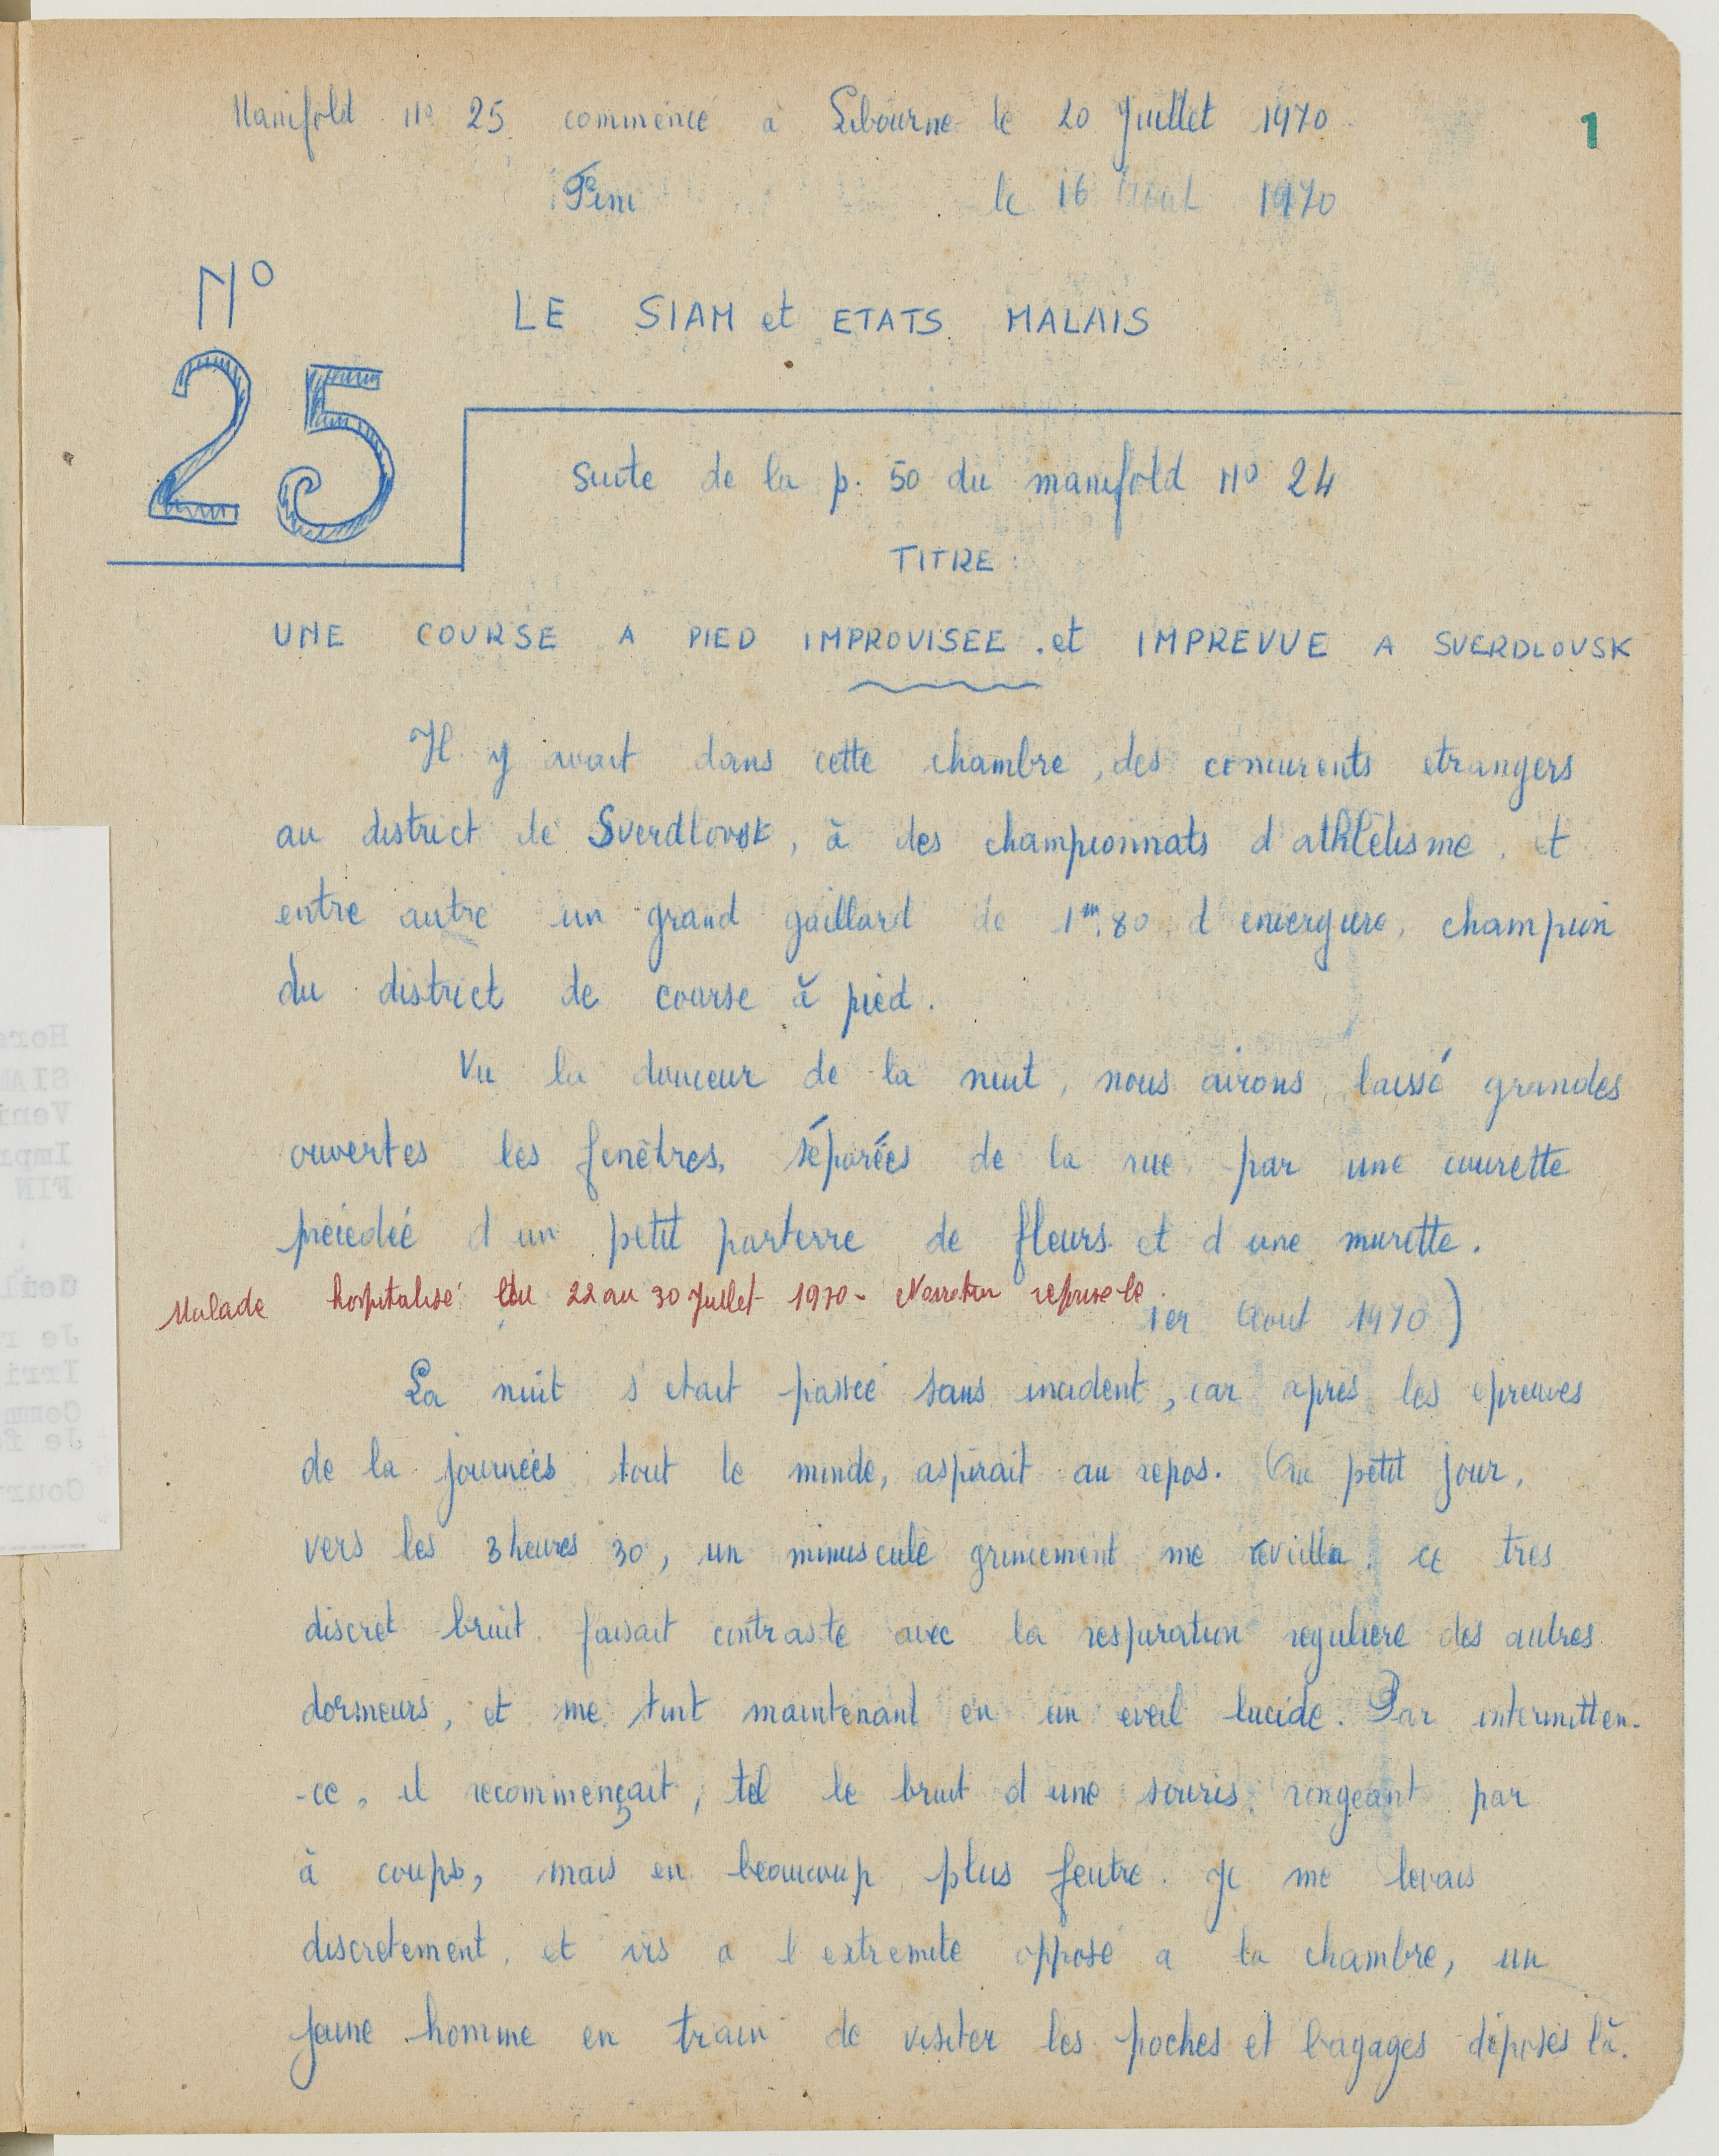 Manifold No 25 commencé à Libourne le 20 Juillet 1970
1
Fini le 16 Aout 1970
No
25
LE SIAM et ETATS MALAIS
suite de la p. 50 du manifold No 24
TITRE
UNE COURSE A PIED IMPROVISEE et IMPREVUE A SVERDLOVSK
Il y avait dans cette chambre, des concurents etrangers
au district de Sverdlovsk, à des championnats d'athlétisme, et
entre autre un grand gaillard de 1m,80, d'envergure, champion
du district de course à pied.
Vu la douceur de la nuit, nous avions laissé grandes
ouvertes les fenêtres, séparées de la rue par une courette
précédée d'un petit parterre de fleurs et d'une murette.
Malade hospitalisé du 22 au 30 Juillet 1970 - Narration reprise le
1er Aout 1970)
La nuit s'etait passée sans incident, car après les epreuves
de la journées tout le monde, aspirait au repos. Au petit jour,
vers les 3 heures 30, un minuscule grincement me réveilla. ce tres
discret bruit faisait contraste avec la respiration reguliere des autres
dormeurs, et me tint maintenant en un eveil lucide. Par intermitten-
-ce, il recommençait, tel le bruit d'une souris rongeant par
à coups, mais en beaucoup plus feutré. Je me levais
discretement, et vis a l'extremité opposé a la chambre, un
jeune homme en train de visiter les poches et bagages déposés là.
Hors
SIAM
Veni
Impr
FIN
Je r
Irri
Comm
Je f
Cour